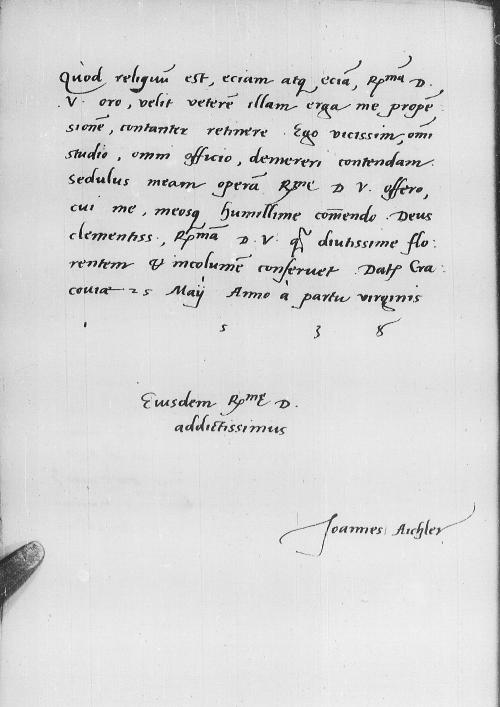 Quod reliquũ est, eciam atq eciã, Rp̃mã D.
V. oro, velit veterẽ illam erga me propẽ
sionẽ, constanter retinere. Ego vicissim, om̃i
studio, omni officio, demereri contendam.
Sedulus meam operã Rp̃mę D V. offero,
cui me, meosq humillime com̃endo. Deus
clementiss., Rp̃mã D. V. q̃ diutissime flo:
rentem & incolumẽ conservet. Datȩ Cra:
coviæ 25 Maij Anno à partu virginis
1 5 3 8
Eiusdem Rp̃mę D.
addictissimus
Joannes Aichler